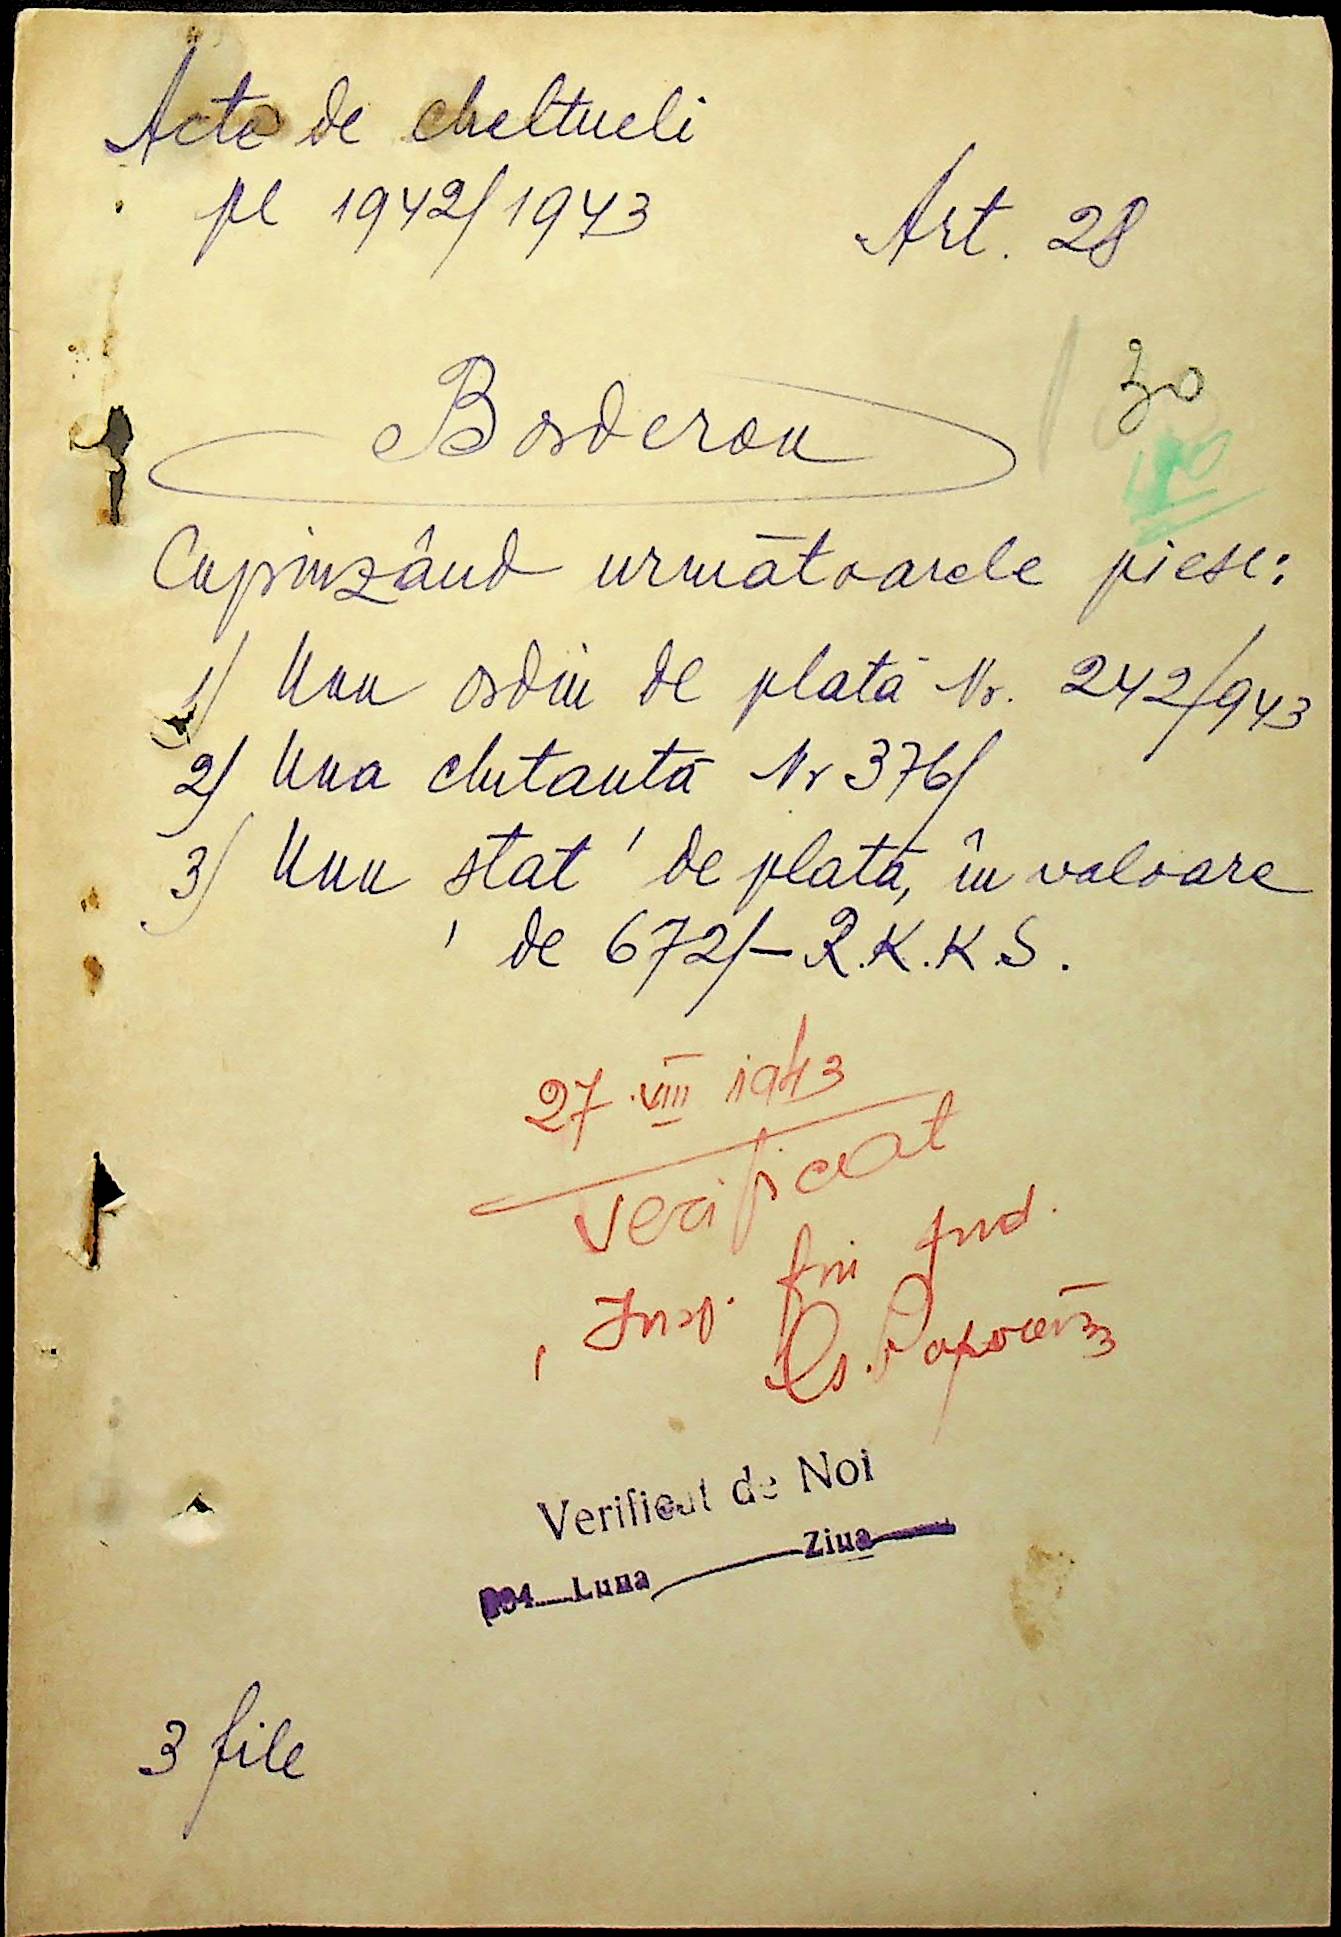 Acte de cheltueli
pe 1942/1943
Art. 28
30
Borderou
Cuprinzând următoarele piese:
1) Unu ordin de plată Nr. 242/943
2) Una chitantă Nr 376/
3) Unu stat de plată, în valoare
de 672/- R.K.K.S.
27 VIII 1943
Verificat
Insp. fin Jud.
Verificat de Noi
194 Luna Ziua
3 file